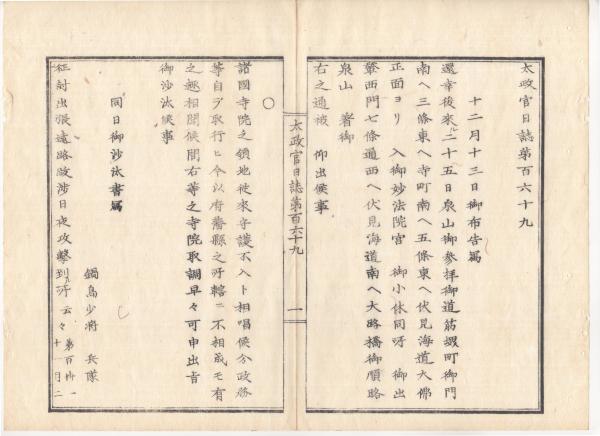 太政官日誌第百六十九
十二月十三日御布告寫
還幸後來ル二十五日泉山御參拜御道筋堺町御門
南ヘ三條東ヘ寺町南ヘ五條東ヘ伏見海道大佛
正面ヨリ 入御妙法院宮 御小休同所 御出
輦西門七條通西ヘ伏見海道南ヘ大路橋御順路
泉山 著御
右之通被 仰出候事
太政官日誌第百六十九
一
○
諸國寺院之領地從來守護不入ト相唱候分政務
等自ラ取行ヒ今以府藩縣之所轄ニ不相成モ有
之趣相聞候間右等之寺院取調早々可申出旨
御沙汰候事
同日御沙汰書寫
鍋島少將 兵隊
征討出張遠路跋涉日夜攻擊到ル所云々 第百卅一 十一月二